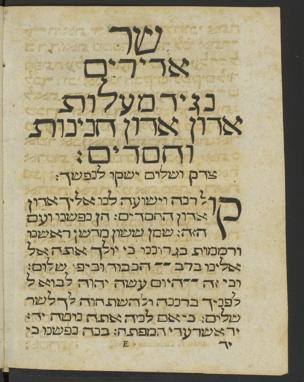 שר
אדירים
נגיד מעלות
אדון אדון חנינות
וחסדים:
צדק ושלום ישקו לנפשך:
קול רנה וישועה לנו אליך אדון
אדון החסדים: הן נפשנו ועם
הזה: שמן ששון מרשן ראשנו
ורממות בגרוננו כי יולך אתה אל
אלינו בדב הכבוד וביפי שלום:
וכי זה היום עשה יהוה לבוא ל
לפניך ברננה ולהשתחוה לך לשר
שלום: כי אם לכה אתה נוטה יד
יד אשר ערי המפתה: בנה נפשנו כי
E יד